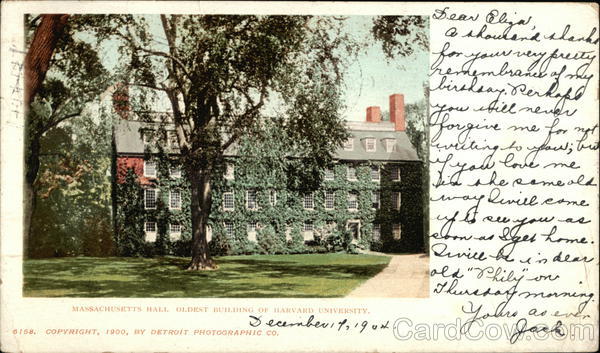 Dear Eliza,
A thousand thanks
for your very pretty
remembrance of my
birthday. Perhaps
you will never
forgive me for not
writing to you; but
if you love me
in the same old
way I will come
up to see you as
soon as I get home.
I will be in dear
old "Phily" on
Thursday morning
Yours as ever
Jack
MASSACHUSETTS HALL. OLDEST BUILDING OF HARVARD UNIVERSITY.
6158. COPYRIGHT, 1900, BY DETROIT PHOTOGRAPHIC CO.
December 19, 1904
CardCow.com